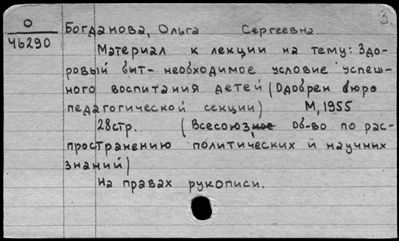 3.
О
Ч6290
Богданова, Ольга Сергеевна.
Материал к лекции на тему: Здо-
ровый быт - необходимое условие успеш-
ного воспитания детей (Одобрен бюро
педагогической секции) М, 1955
28стр. (Всесоюзное об-во по рас-
пространению политических и научных
знаний)
На правах рукописи.